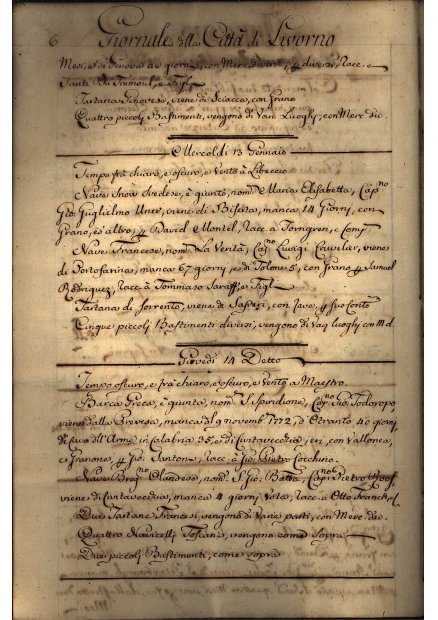 6. Giornale della Città di Livorno
Mesi, e di Genova 20 giorni, con Merc. diverse, p. diversi, Racc. a
Santi
Tartana Genovese, viene di Sciacca, con Grano
Quattro piccoli Bastimenti, vengono di Varj Luoghi, con Merc. div.
Mercoledì 13 Gennaio
Tempo frà chiaro, e oscuro, e Vento à Libeccio
Nave Snow Svedese, è giunta, nom. Maria Elisabetta, Cap.no
Gio: Guglielmo viene di Biserta, manca 14 Giorni, con
Grano, ed altro, p. David e Montel, Racc. a Torngren, e Comp.
Nave Francese, nom. La Verità, Cap.no Luigi Cruvelier, viene
di Portofarina, manca 67 giorni, e di Tolone 5, con Grano, p. Samuel
Rodriguez, Racc. à Tommaso e Figl.
Tartana di Sorrento, viene di con p. suo Conto
Cinque piccoli Bastimenti diversi, vengono di Varj luoghi con M. d.
Giovedì 14 Detto
Tempo oscuro, e frà chiaro, e oscuro, e Vento a Maestro.
Barca Greca, è giunta, nom. S. Spiridione, Cap.no Gio: Todoropo,
viene dalla Prevesa, manca dal 9 novemb. 1772, d'Otranto 40 giorni,
di Calabria 35, e di Civitavecchia jeri, con Vallonea,
e Granone, p. Gio: Santon, Racc. à Gio: Pietro Cocchino.
Nave Brig.no Olandese, nom. S. Gio: Batta, Cap. Pietro
viene di Civitavecchia, manca 4 giorni, Vota, Racc. a Otto Franck, e C.
Due Tartane Francesi, vengono di Varie parti, con Merc. div.
Quattro Navicelli Toscani, vengono come sopra
Due piccoli Bastimenti, come sopra